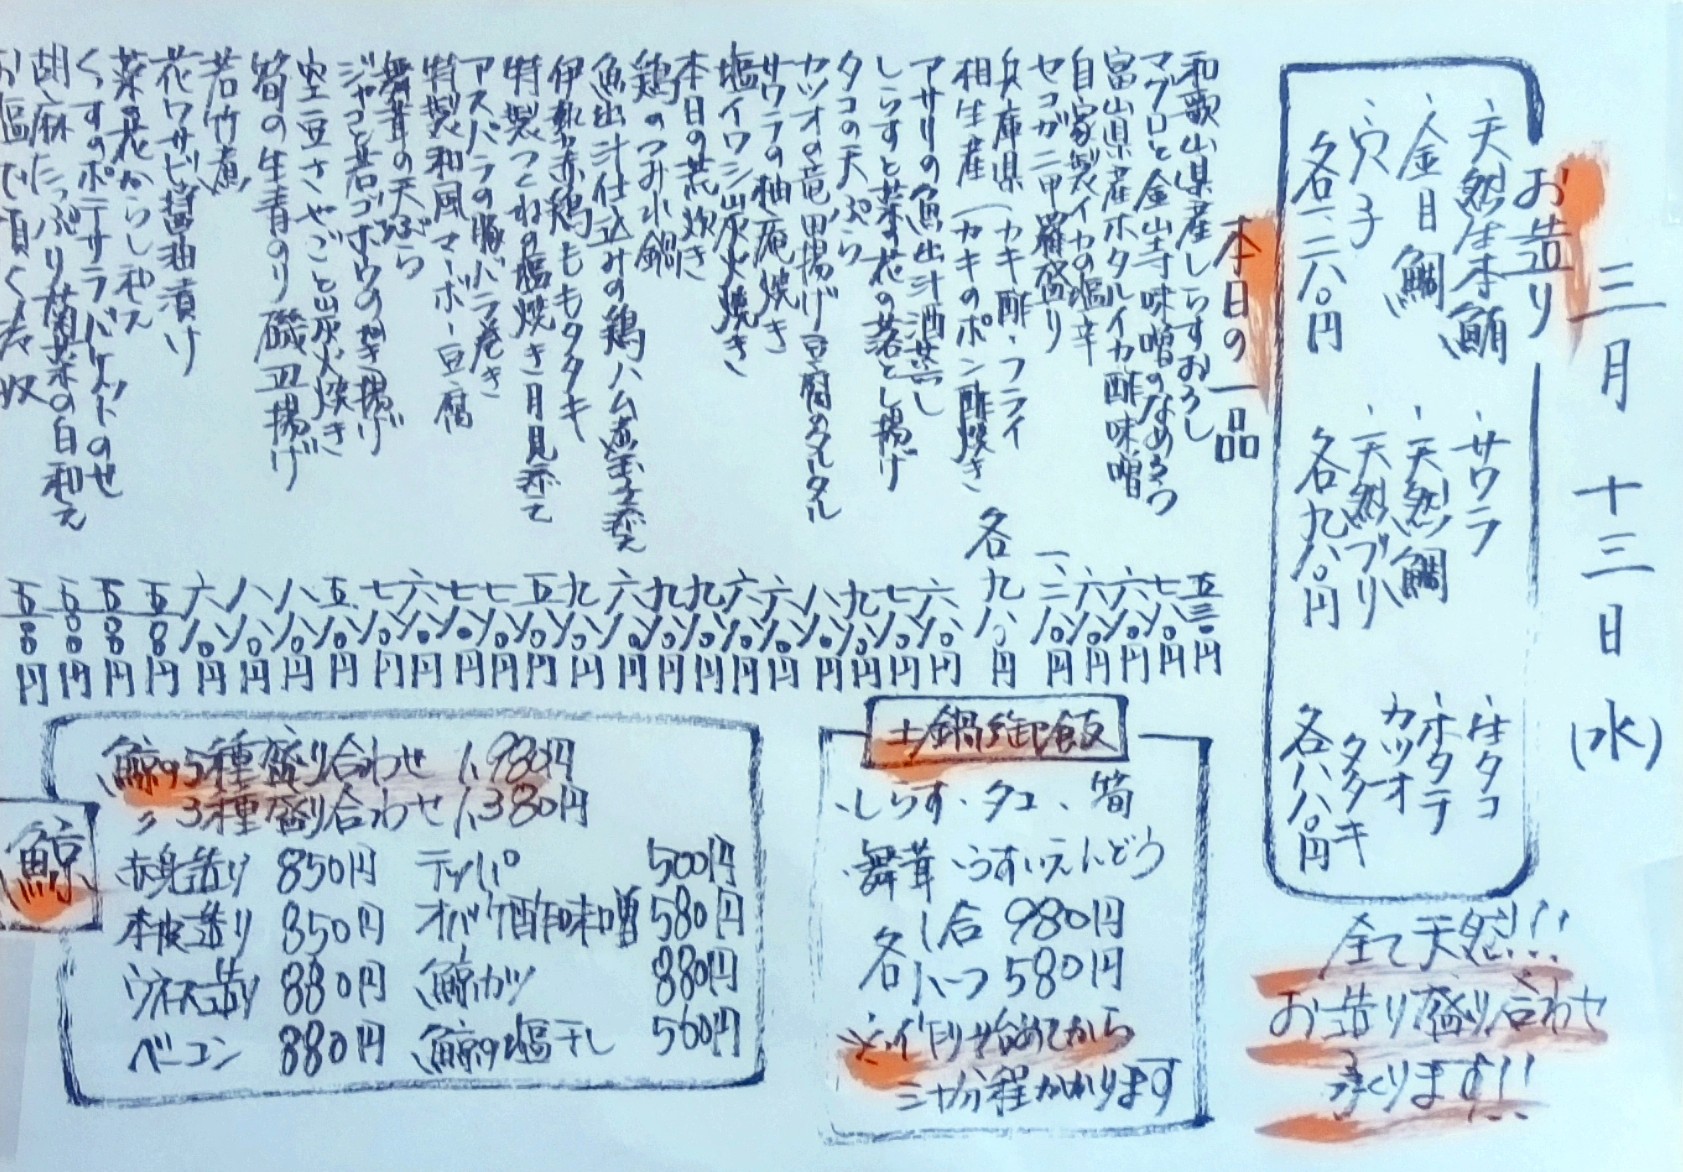 三月十三日(水)
お造り
・天然生本鮪
・金目鯛
・穴子
各一、二八〇円
・サワラ
・天然鯛
・天然ブリ
各九八〇円
・生タコ
・ホタテ
・カツオ
タタキ
各八八〇円
全て天然!!
お造り盛り合わせ
承ります!!
本日の一品
和歌山県産しらすおろし 五三〇円
マグロと金山寺味噌のなめろう 七八〇円
富山県産ホタルイカ酢味噌 六八〇円
自家製イカの塩辛 六八〇円
セコガニ甲羅盛り 一、二八〇円
兵庫県(カキ酢・フライ
相生産(カキのポン酢焼き 各九八〇円
アサリの魚出汁酒蒸し 六八〇円
しらすと菜の花の落とし揚げ 七八〇円
タコの天ぷら 九八〇円
カツオの竜田揚げ豆腐のタルタル 八八〇円
サワラの柚庵焼き 六八〇円
塩イワシ炭火焼き 六八〇円
本日の荒炊き 九八〇円
鶏のつみれ鍋 九八〇円
魚出汁仕込みの鶏ハム煮玉子添え 六八〇円
伊勢赤鶏ももタタキ 九八〇円
特製つくねの塩焼き月見添え 五八〇円
アスパラの豚バラ巻き 七八〇円
特製和風マーボー豆腐 七八〇円
舞茸の天ぷら 六八〇円
ジャコと若ゴボウのかき揚げ 七八〇円
空豆さやごと炭火焼き 五八〇円
筍の生青のり磯辺揚げ 八八〇円
若竹煮 八八〇円
花ワサビ醤油漬け 六八〇円
菜の花からし和え 五八〇円
くらすのポテサラバケットのせ 五〇〇円
胡麻たっぷり菊菜の白和え 五〇〇円
お塩で頂く冷奴 五〇〇円
土鍋御飯
・しらす・タコ・筍
・舞茸・うすいえんどう
各 1合 980円
ハーフ 580円
※作り始めてから
三十分程かかります
鯨
鯨の5種盛り合わせ 1,980円
〃 3種盛り合わせ 1,380円
赤身造り 850円 テッパ 500円
本皮造り 850円 オバケ酢味噌 580円
ウネス造り 880円 鯨カツ 880円
ベーコン 880円 鯨の塩干し 560円